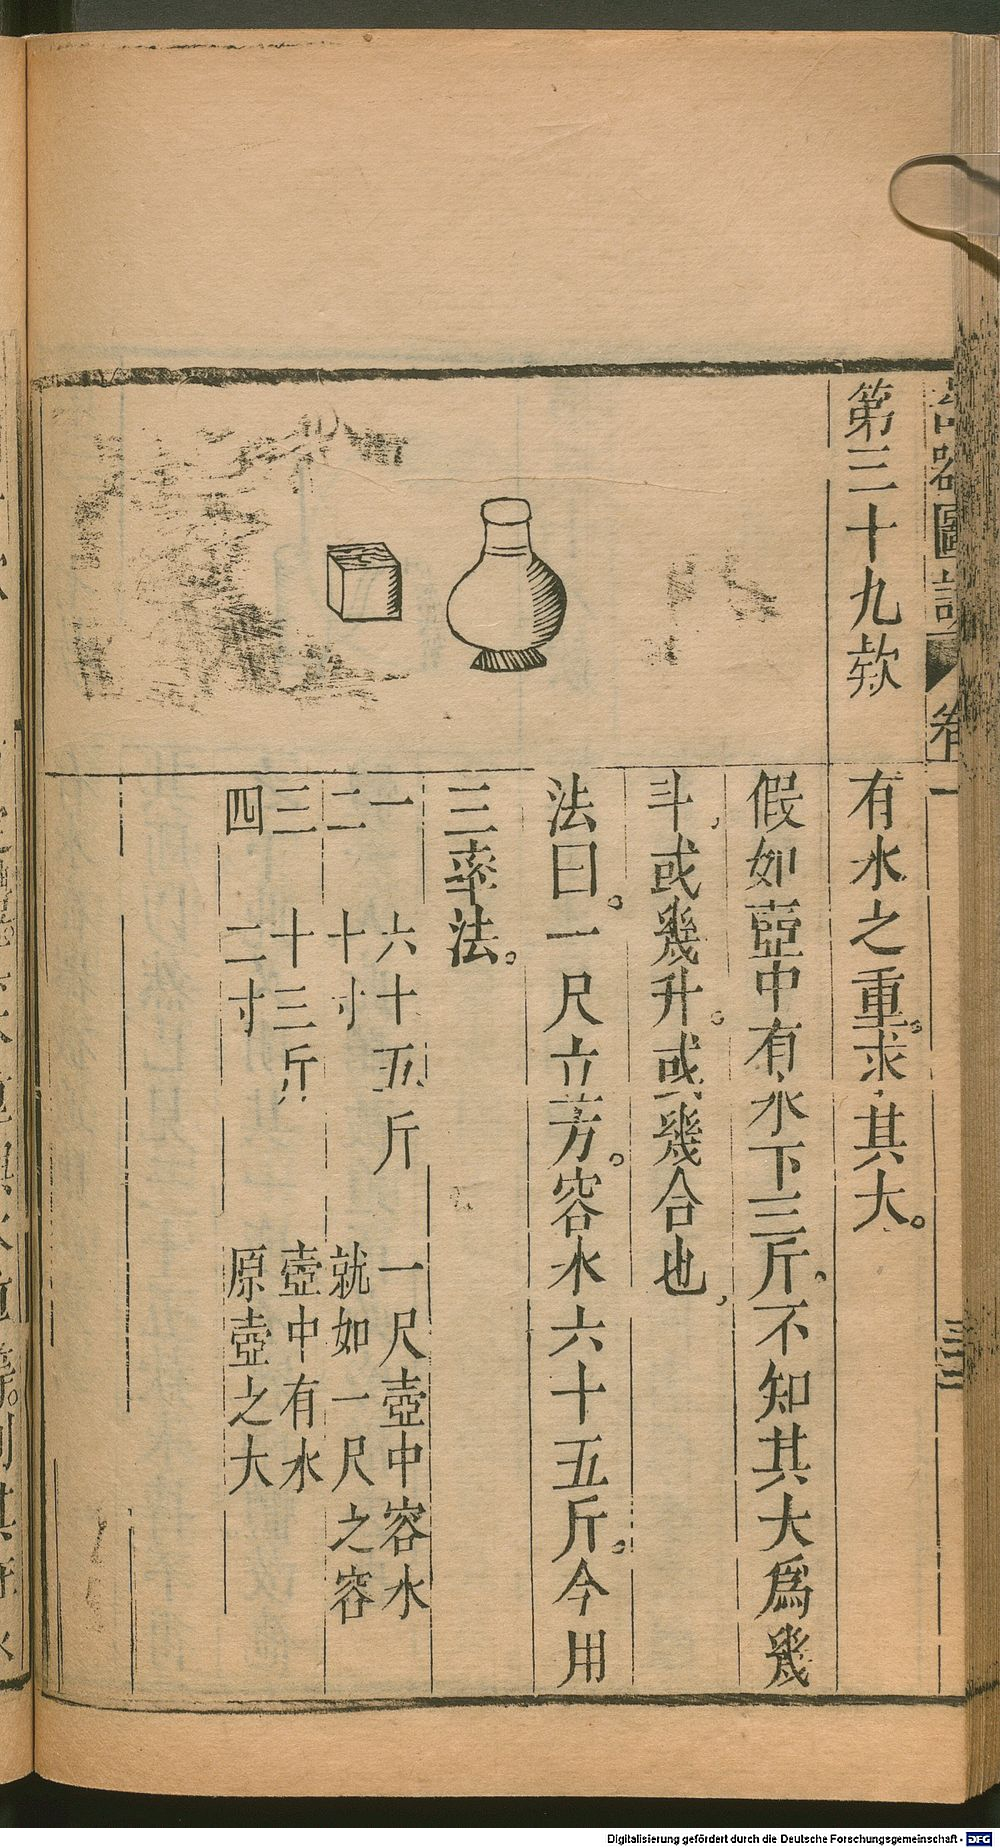 第三十九款
有水之重。求其大。
假如壺中有水下三斤，不知其大爲幾
斗，或幾升。或幾合也，
法曰。一尺立方。容水六十五斤。今用
三率法。
一 六十五斤 一尺壺中容水
二 十寸 就如一尺之容
三 十三斤 壺中有水
四 二寸 原壺之大
器圖說 卷一
三十三
Digitalisierung gefördert durch die Deutsche Forschungsgemeinschaft - DFG